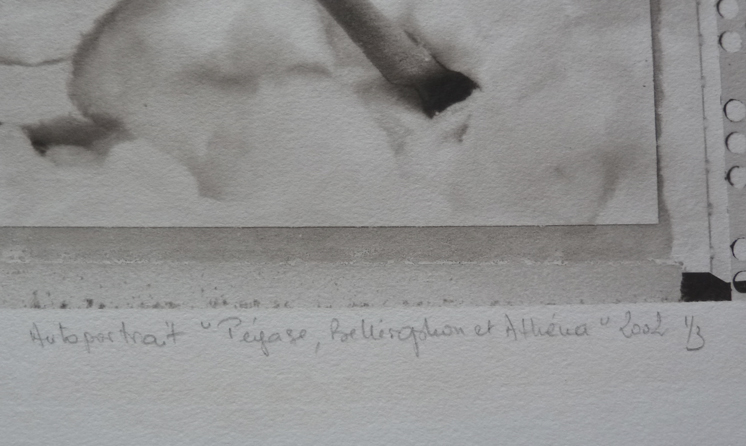 Autoportrait "Pégase, Bellérophon et Athéna" 2002 1/3